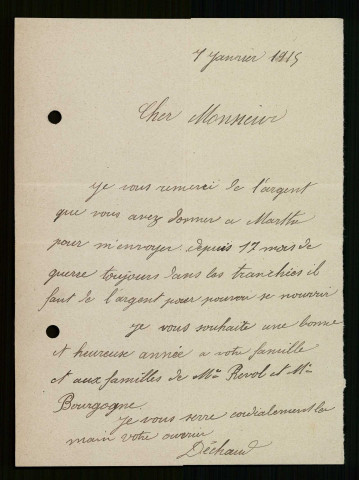 7 Janvier 1915
Cher Monsieur
je vous remerci de l'argent
que vous avez donner a Marthe
pour m'envoyer depuis 17 mois de
guerre toujours dans les tranchies il
faut de l'argent pour pouvoir se nourrir
je vous souhaite une bonne
et heureuse année a votre famille
et aux familles de Mr Revol et Mr
Bourgogne
Je vous serre cordialement la
main votre ouvrier
Déchaud